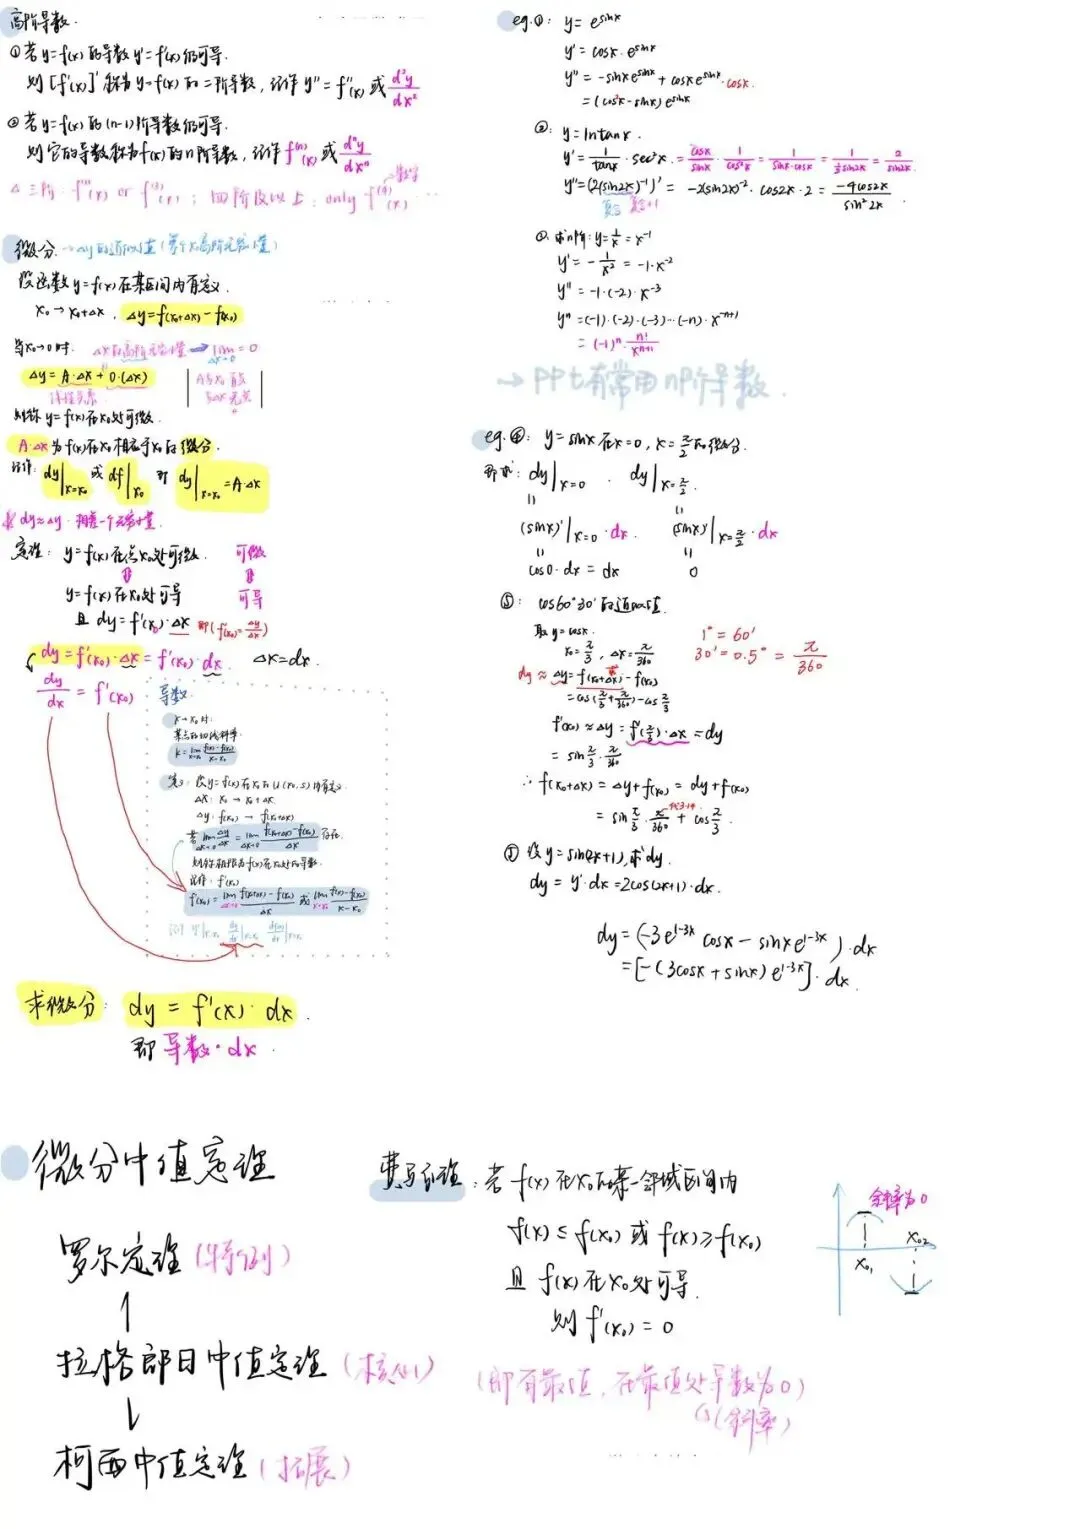 高阶导数.
① 若y=f(x)的导数y'=f'(x)仍可导.
则[f'(x)]'称为y=f(x)的二阶导数,记作y''=f''(x)或d²y/dx²
② 若y=f(x)的(n-1)阶导数仍可导.
则它的导数称为f(x)的n阶导数,记作f⁽ⁿ⁾(x)或dⁿy/dxⁿ
△ 三阶: f'''(x) or f⁽³⁾(x); 四阶及以上: only f⁽⁴⁾(x).
数字
微分. → Δy的近似值(差个x高阶无穷小量)
设函数y=f(x)在某区间内有定义.
x₀→x₀+Δx, Δy=f(x₀+Δx)-f(x₀)
当x₀→0时. Δx的高阶无穷小量 → lim = 0
Δx→0
Δy=A·Δx+o·(Δx)
线性关系
A与x₀有关
与Δx无关
则称y=f(x)在x₀处可微.
A·Δx为f(x)在x₀相应于x₀的微分.
记作: dy|x=x₀ 或 df|x₀ 即 dy|x=x₀=A·Δx
dy≈Δy. 相差一个无穷小量.
定理: y=f(x)在点x₀处可微. 可微
⇕ ⇕
y=f(x)在x₀处可导 可导
且 dy=f'(x₀)·Δx 即(f'(x₀)=Δy/Δx)
dy=f'(x₀)·Δx=f'(x₀)·dx. Δx=dx.
dy/dx = f'(x₀)
导数.
x→x₀时.
某点的切线斜率.
k=lim x→x₀ f(x)-f(x₀)/x-x₀
定义: 设y=f(x)在x₀的U(x₀,δ)内有定义.
Δx: x₀→x₀+Δx
Δy: f(x₀)→f(x₀+Δx)
若 lim Δx→0 Δy/Δx = lim Δx→0 f(x₀+Δx)-f(x₀)/Δx 存在.
则称极限为f(x)在x₀处的导数.
记作: f'(x₀)
f'(x₀)=lim Δx→0 f(x₀+Δx)-f(x₀)/Δx 或 lim x→x₀ f(x)-f(x₀)/x-x₀
求微分: dy = f'(x)·dx.
即 导数·dx.
eg.①: y=e^sinx
y'=cosx·e^sinx
y''=-sinx e^sinx+cosx e^sinx·cosx.
=(cos²x-sinx)e^sinx
②: y=lntanx.
y'=1/tanx·sec²x=cosx/sinx·1/cos²x=1/sinx·cosx=1/½sin2x=2/sin2x.
y''=(2(sin2x)⁻¹)'=-2(sin2x)⁻²·cos2x·2=-4cos2x/sin²2x.
复合 复合+1
求n阶: y=1/x=x⁻¹
y'=-1/x²=-1·x⁻²
y''=-1·(-2)·x⁻³
yⁿ=(-1)·(-2)·(-3)…(-n)·x⁻ⁿ⁺¹
=(-1)ⁿ·n!/xⁿ⁺¹
→ PPt有常用n阶导数.
eg.④: y=sinx在x=0, x=π/2的微分.
即求: dy|x=0. dy|x=π/2.
(sinx)'|x=0·dx. (sinx)'|x=π/2·dx
cos0·dx=dx 0
⑤: cos60°30'的近似值.
取y=cosx.
x₀=π/3, Δx=π/360
1°=60'
30'=0.5°=π/360
dy≈Δy=f(x₀+Δx)-f(x₀)
=cos(π/3+π/360)-cosπ/3
f'(x)≈Δy=f'(π/3)·Δx=dy
=sinπ/3·π/360
∴f(x₀+Δx)=Δy+f(x₀)=dy+f(x₀)
=sinπ/3·π/360+cosπ/3.
代3.14
⑤ 设y=sin(2x+1),求dy.
dy=y'·dx=2cos(2x+1)·dx.
dy=(-3e^1-3x cosx-sinx e^1-3x)·dx
=[-(3cosx+sinx)e^1-3x]·dx.
微分中值定理
罗尔定理(特例)
↑
拉格郎日中值定理(核心)
↓
柯西中值定理(拓展)
费马定理: 若f(x)在x₀的某一邻域区间内
f(x)≤f(x₀)或f(x)≥f(x₀)
且f(x)在x₀处可导.
则f'(x₀)=0
(即有最值,在最值处导数为0)
(斜率)
斜率为0
x₀₁
x₀₂